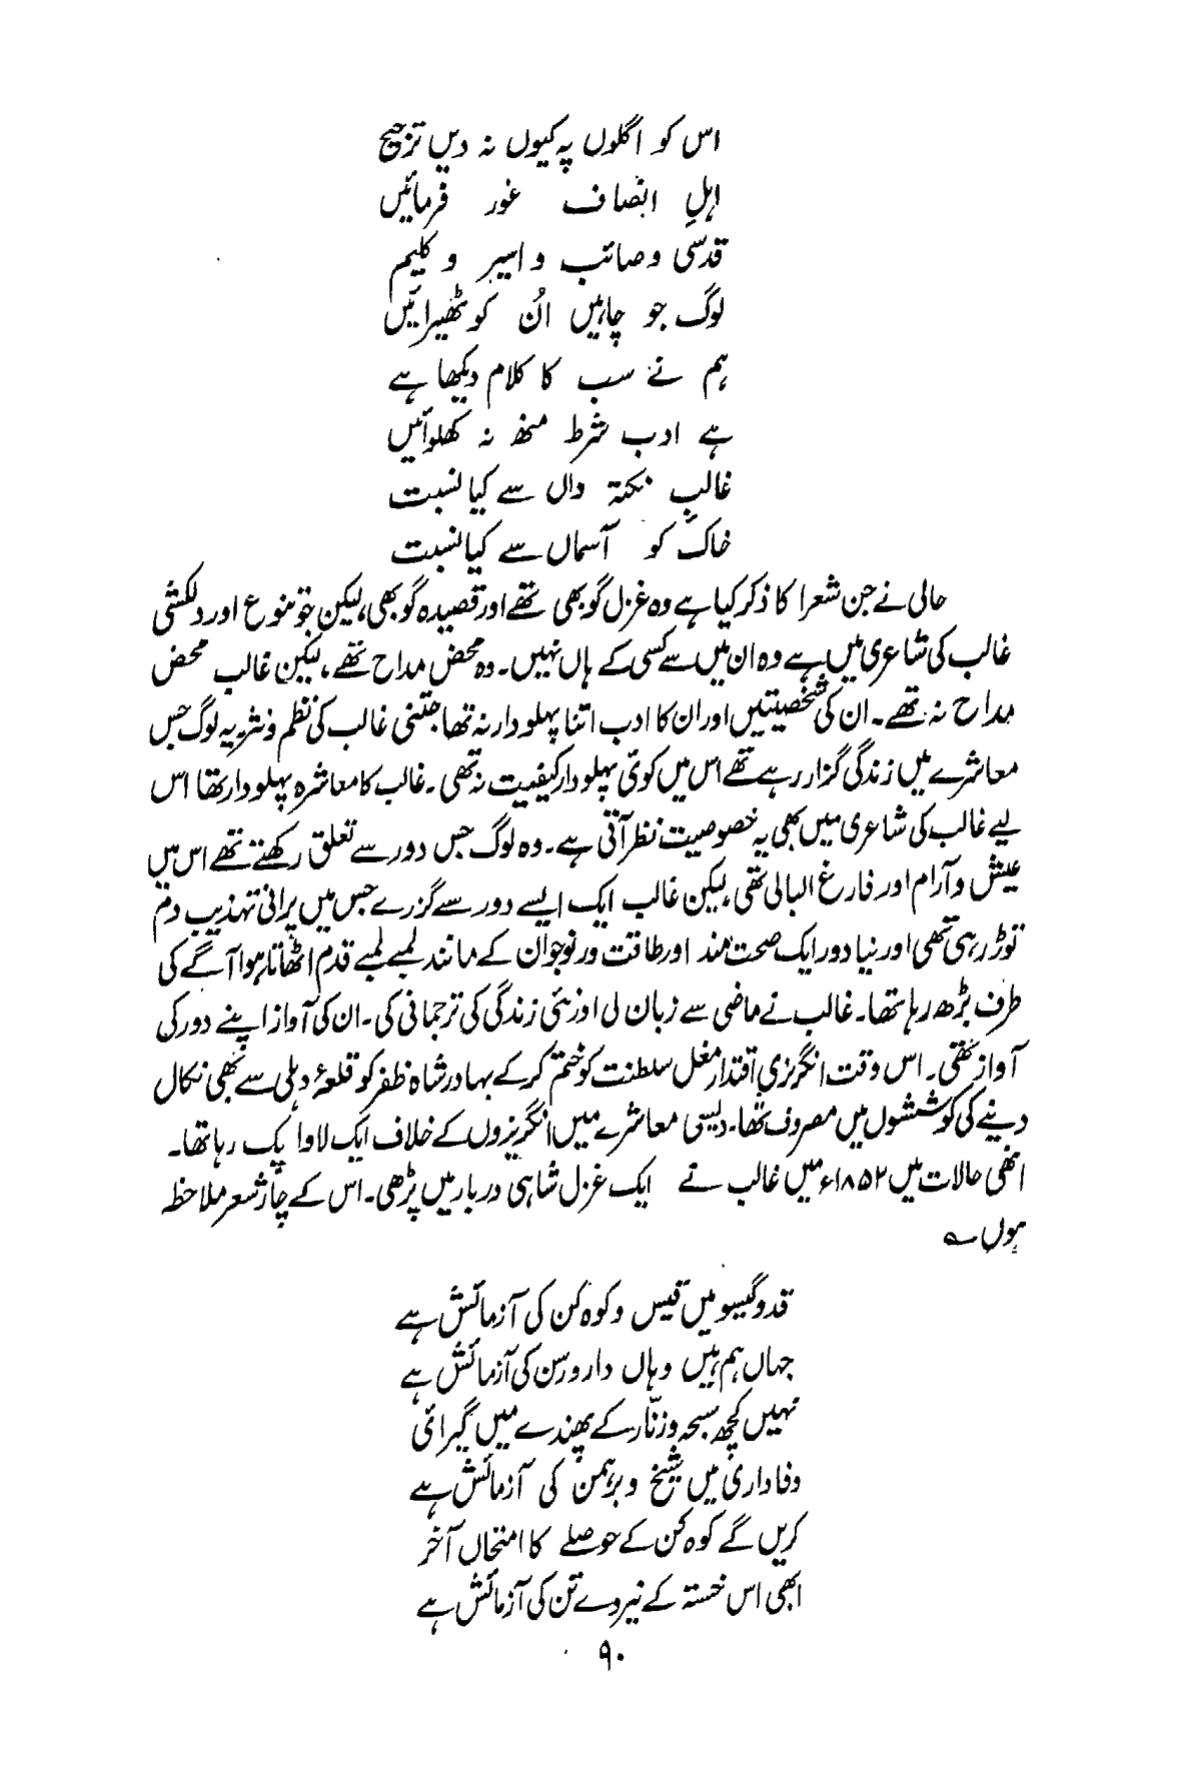 اس کو اگلوں پہ کیوں نہ دیں ترجیح
اہلِ انصاف غور فرمائیں
قدسی و صائب و اسیر و کلیم
لوگ جو چاہیں اُن کو ٹھیرائیں
ہم نے سب کا کلام دیکھا ہے
ہے ادب شرط منھ نہ کھلوائیں
غالبِ نکتہ داں سے کیا نسبت
خاک کو آسماں سے کیا نسبت
حالی نے جن شعرا کا ذکر کیا ہے وہ غزل گو بھی تھے اور قصیدہ گو بھی، لیکن جو تنوع اور دلکشی
غالب کی شاعری میں ہے وہ ان میں سے کسی کے ہاں نہیں۔ وہ محض مداح تھے، لیکن غالب محض
مداح نہ تھے۔ ان کی شخصیتیں اور ان کا ادب اتنا پہلودار نہ تھا جتنی غالب کی نظم و نثر۔ یہ لوگ جس
معاشرے میں زندگی گزار رہے تھے اس میں کوئی پہلودار کیفیت نہ تھی۔ غالب کا معاشرہ پہلودار تھا اس
لیے غالب کی شاعری میں بھی یہ خصوصیت نظر آتی ہے۔ وہ لوگ جس دور سے تعلق رکھتے تھے اس میں
عیش و آرام اور فارغ البالی تھی، لیکن غالب ایک ایسے دور سے گزرے جس میں پرانی تہذیب دم
توڑ رہی تھی اور نیا دور ایک صحت مند اور طاقت ور نوجوان کے مانند لمبے لمبے قدم اٹھاتا ہوا آگے کی
طرف بڑھ رہا تھا۔ غالب نے ماضی سے زبان لی اور نئی زندگی کی ترجمانی کی۔ ان کی آواز اپنے دور کی
آواز تھی۔ اس وقت انگریزی اقتدار مغل سلطنت کو ختم کر کے بہادر شاہ ظفر کو قلعۂ دہلی سے بھی نکال
دینے کی کوششوں میں مصروف تھا۔ دیسی معاشرے میں انگریزوں کے خلاف ایک لاوا پک رہا تھا۔
انھی حالات میں ۱۸۵۲ء میں غالب نے ایک غزل شاہی دربار میں پڑھی۔ اس کے چار شعر ملاحظہ
ہوں ؎
قد و گیسو میں قیس و کوہ کن کی آزمائش ہے
جہاں ہم ہیں وہاں دار و رسن کی آزمائش ہے
نہیں کچھ سبحہ و زنّار کے پھندے میں گیرائی
وفاداری میں شیخ و برہمن کی آزمائش ہے
کریں گے کوہ کن کے حوصلے کا امتحاں آخر
ابھی اس خستہ کے نیروے تن کی آزمائش ہے
۹۰